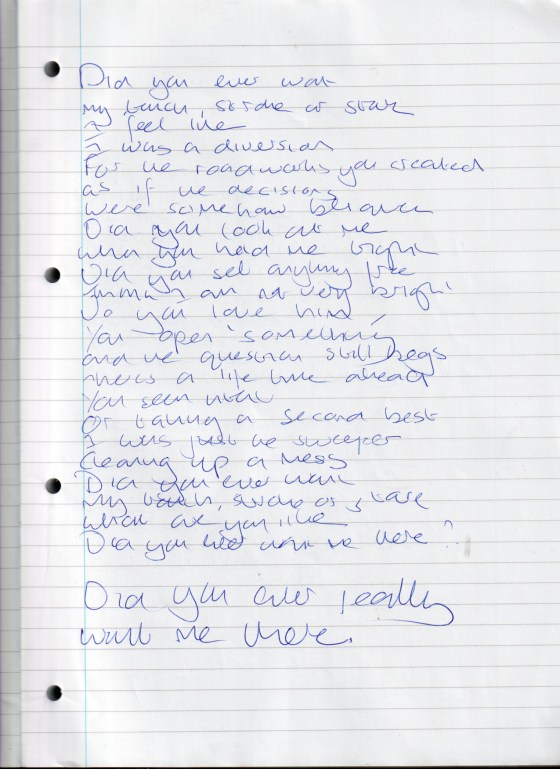 Did you ever want
my touch, stroke or stare
I feel like
I was a diversion
For the roadworks you created
as if the decisions
were somehow
Did you look at me
when you had me
Did you see anything
I am not very bright
Do you love him
You open 'something'
and the question still begs
theres a life time ahead
You seen
Or taking a second best
I was just the sweeper
Cleaning up a mess
Did you ever want
My touch, stroke or stare
what are you like
Did you want me there?
Did you ever really
want me there.